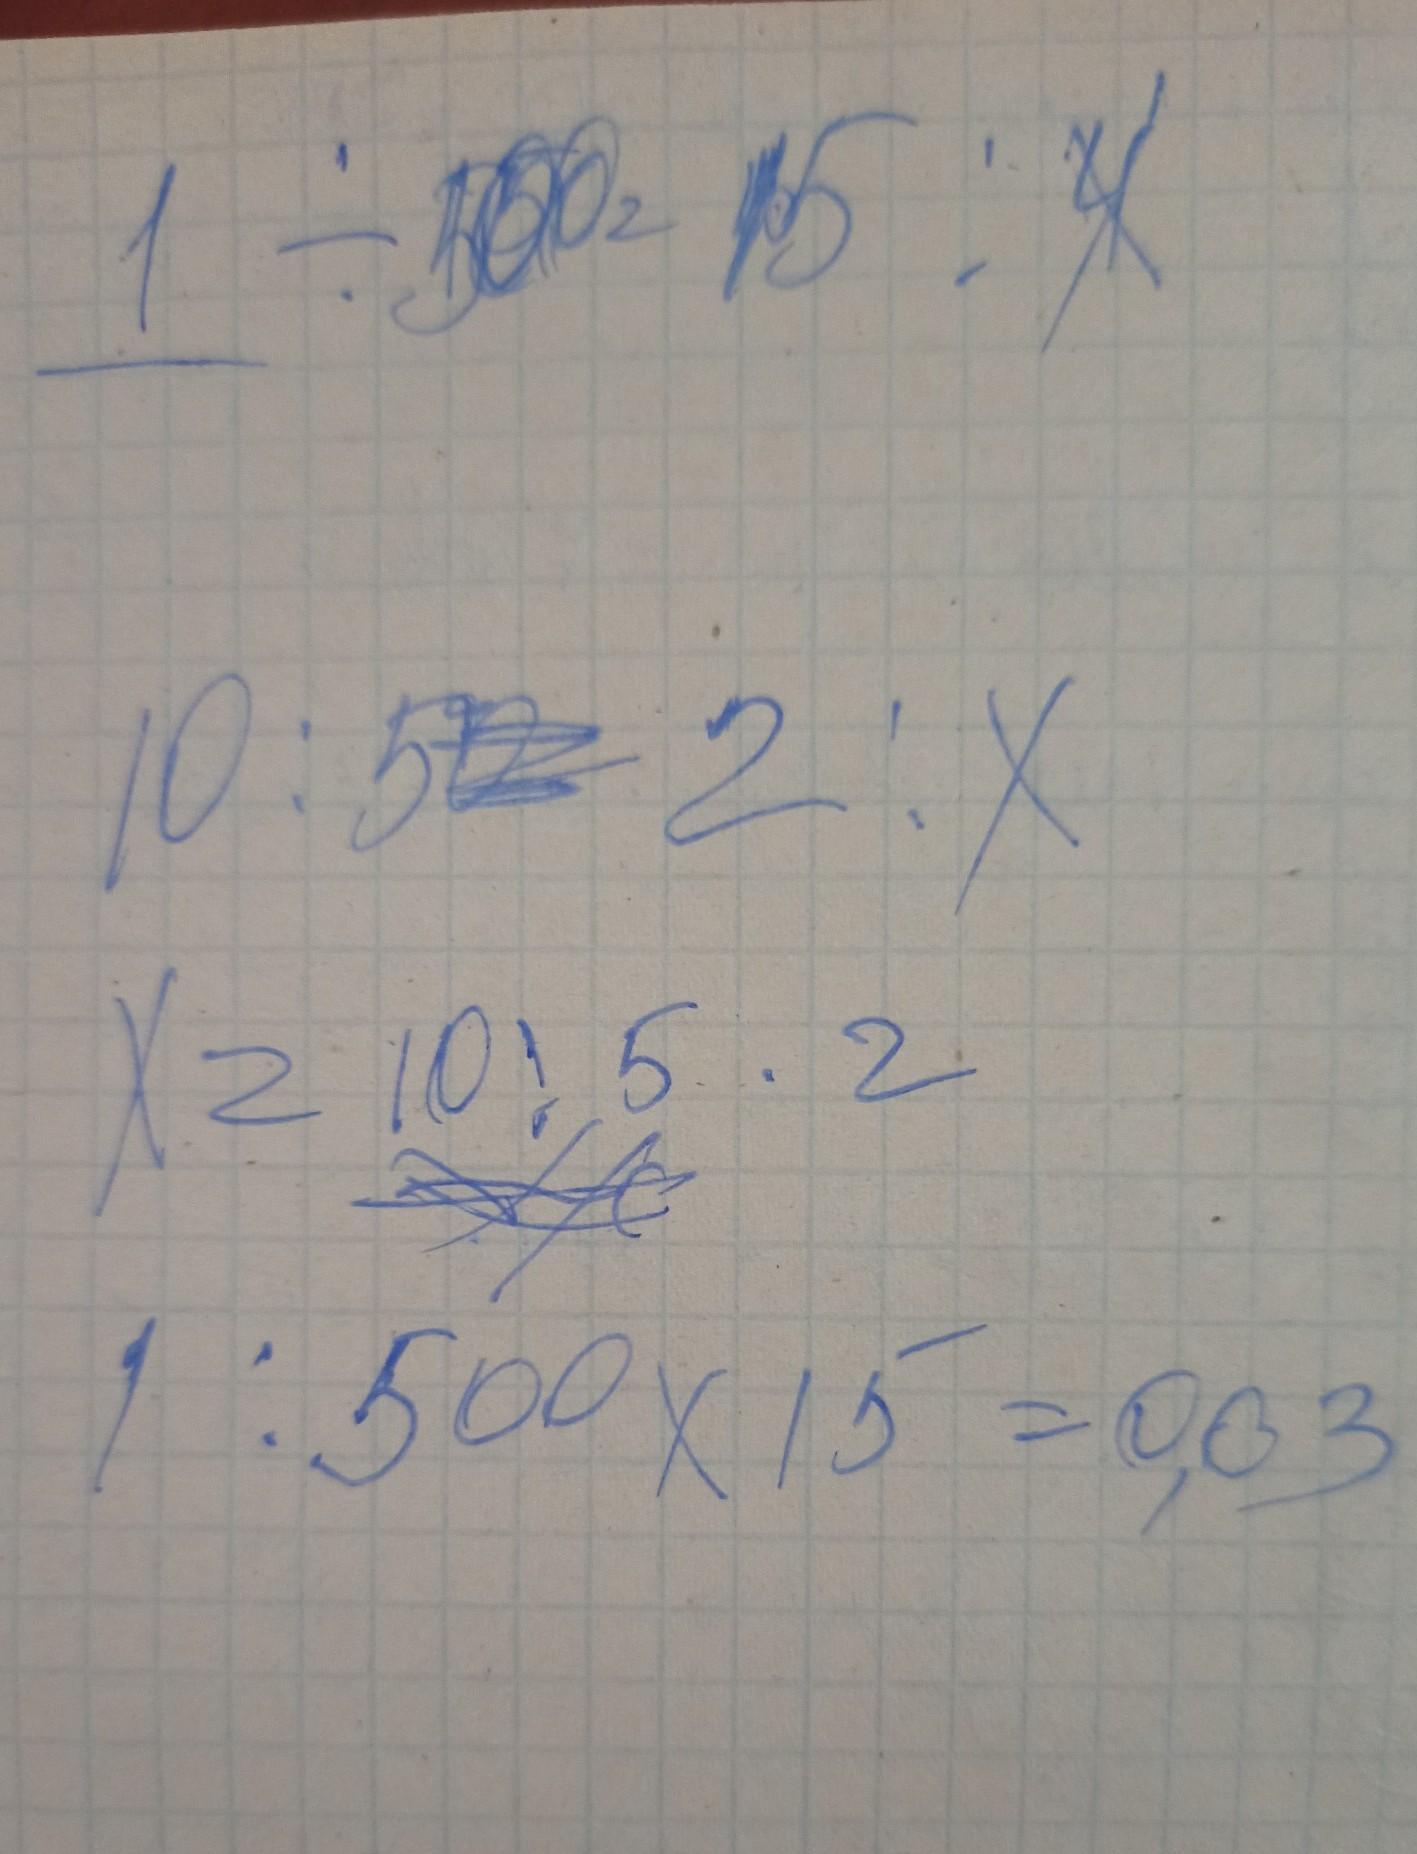 1 ÷ 500 = 15 : X
10 : 5 = 2 : X
X = 10 : 5 . 2
1 : 500 X 15 = 0,03